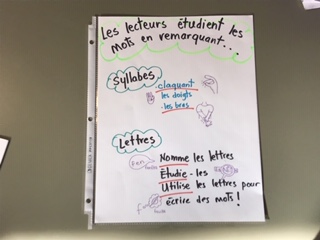 Les lecteurs étudient les
mots en remarquant....
Syllabes
. claquant
les doigts
. les bras
Lettres
Nomme les lettres
Étudie - les
Utilise les lettres pour
écrire des mots!